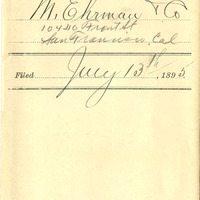 M. Ehrman & Co
104-110 Front St
San Francisco, Cal
Filed July 13th, 1895.